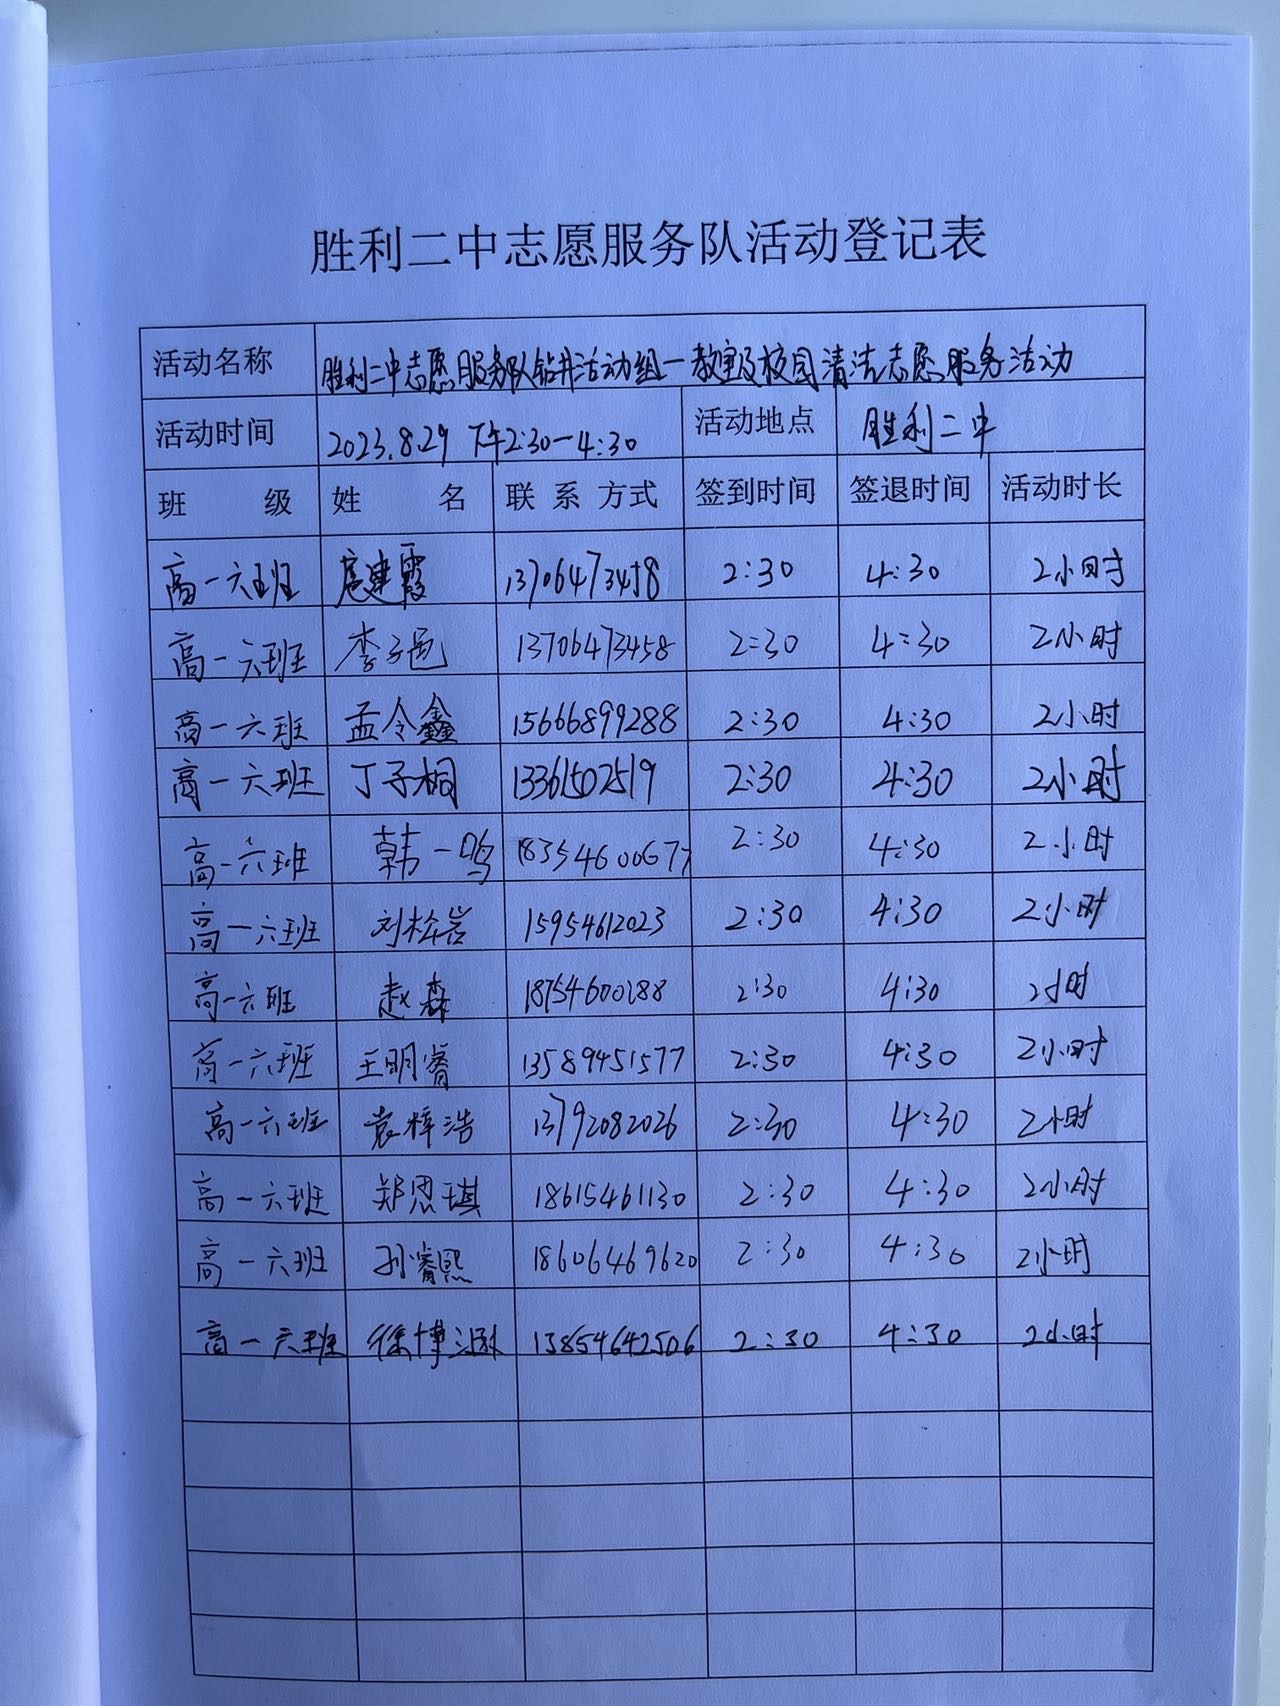 胜利二中志愿服务队活动登记表
活动名称 胜利二中志愿服务队钻井活动组一教室及校园清洁志愿服务活动
活动时间 2023.8.29 下午2:30—4:30 活动地点 胜利二中
班 级 姓 名 联系方式 签到时间 签退时间 活动时长
高一六班 扈建霞 13706473458 2:30 4:30 2小时
高一六班 李子邑 13706473458 2:30 4:30 2小时
高一六班 孟令鑫 15666899288 2:30 4:30 2小时
高一六班 丁子桐 13361502519 2:30 4:30 2小时
高一六班 韩一鸣 18354600677 2:30 4:30 2小时
高一六班 刘松岩 15954612023 2:30 4:30 2小时
高一六班 赵森 2:30 4:30 2小时
高一六班 王明睿 13589451577 2:30 4:30 2小时
高一六班 袁梓浩 13792082026 2:30 4:30 2小时
高一六班 郑恩琪 18615461130 2:30 4:30 2小时
高一六班 孙睿熙 18606469620 2:30 4:30 2小时
高一六班 徐博 13854642506 2:30 4:30 2小时